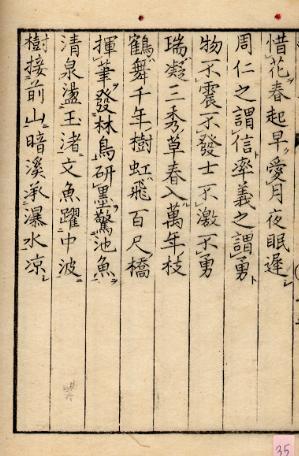 惜花春起早愛月夜眠遲
周仁之謂信率義之謂勇
物不震不發士不激不勇
瑞凝三秀草春入萬年枝
鶴舞千年樹虹飛百尺橋
揮筆發林鳥研墨驚池魚
清泉盪玉渚文魚躍中波
樹接前山暗溪承瀑水涼
35